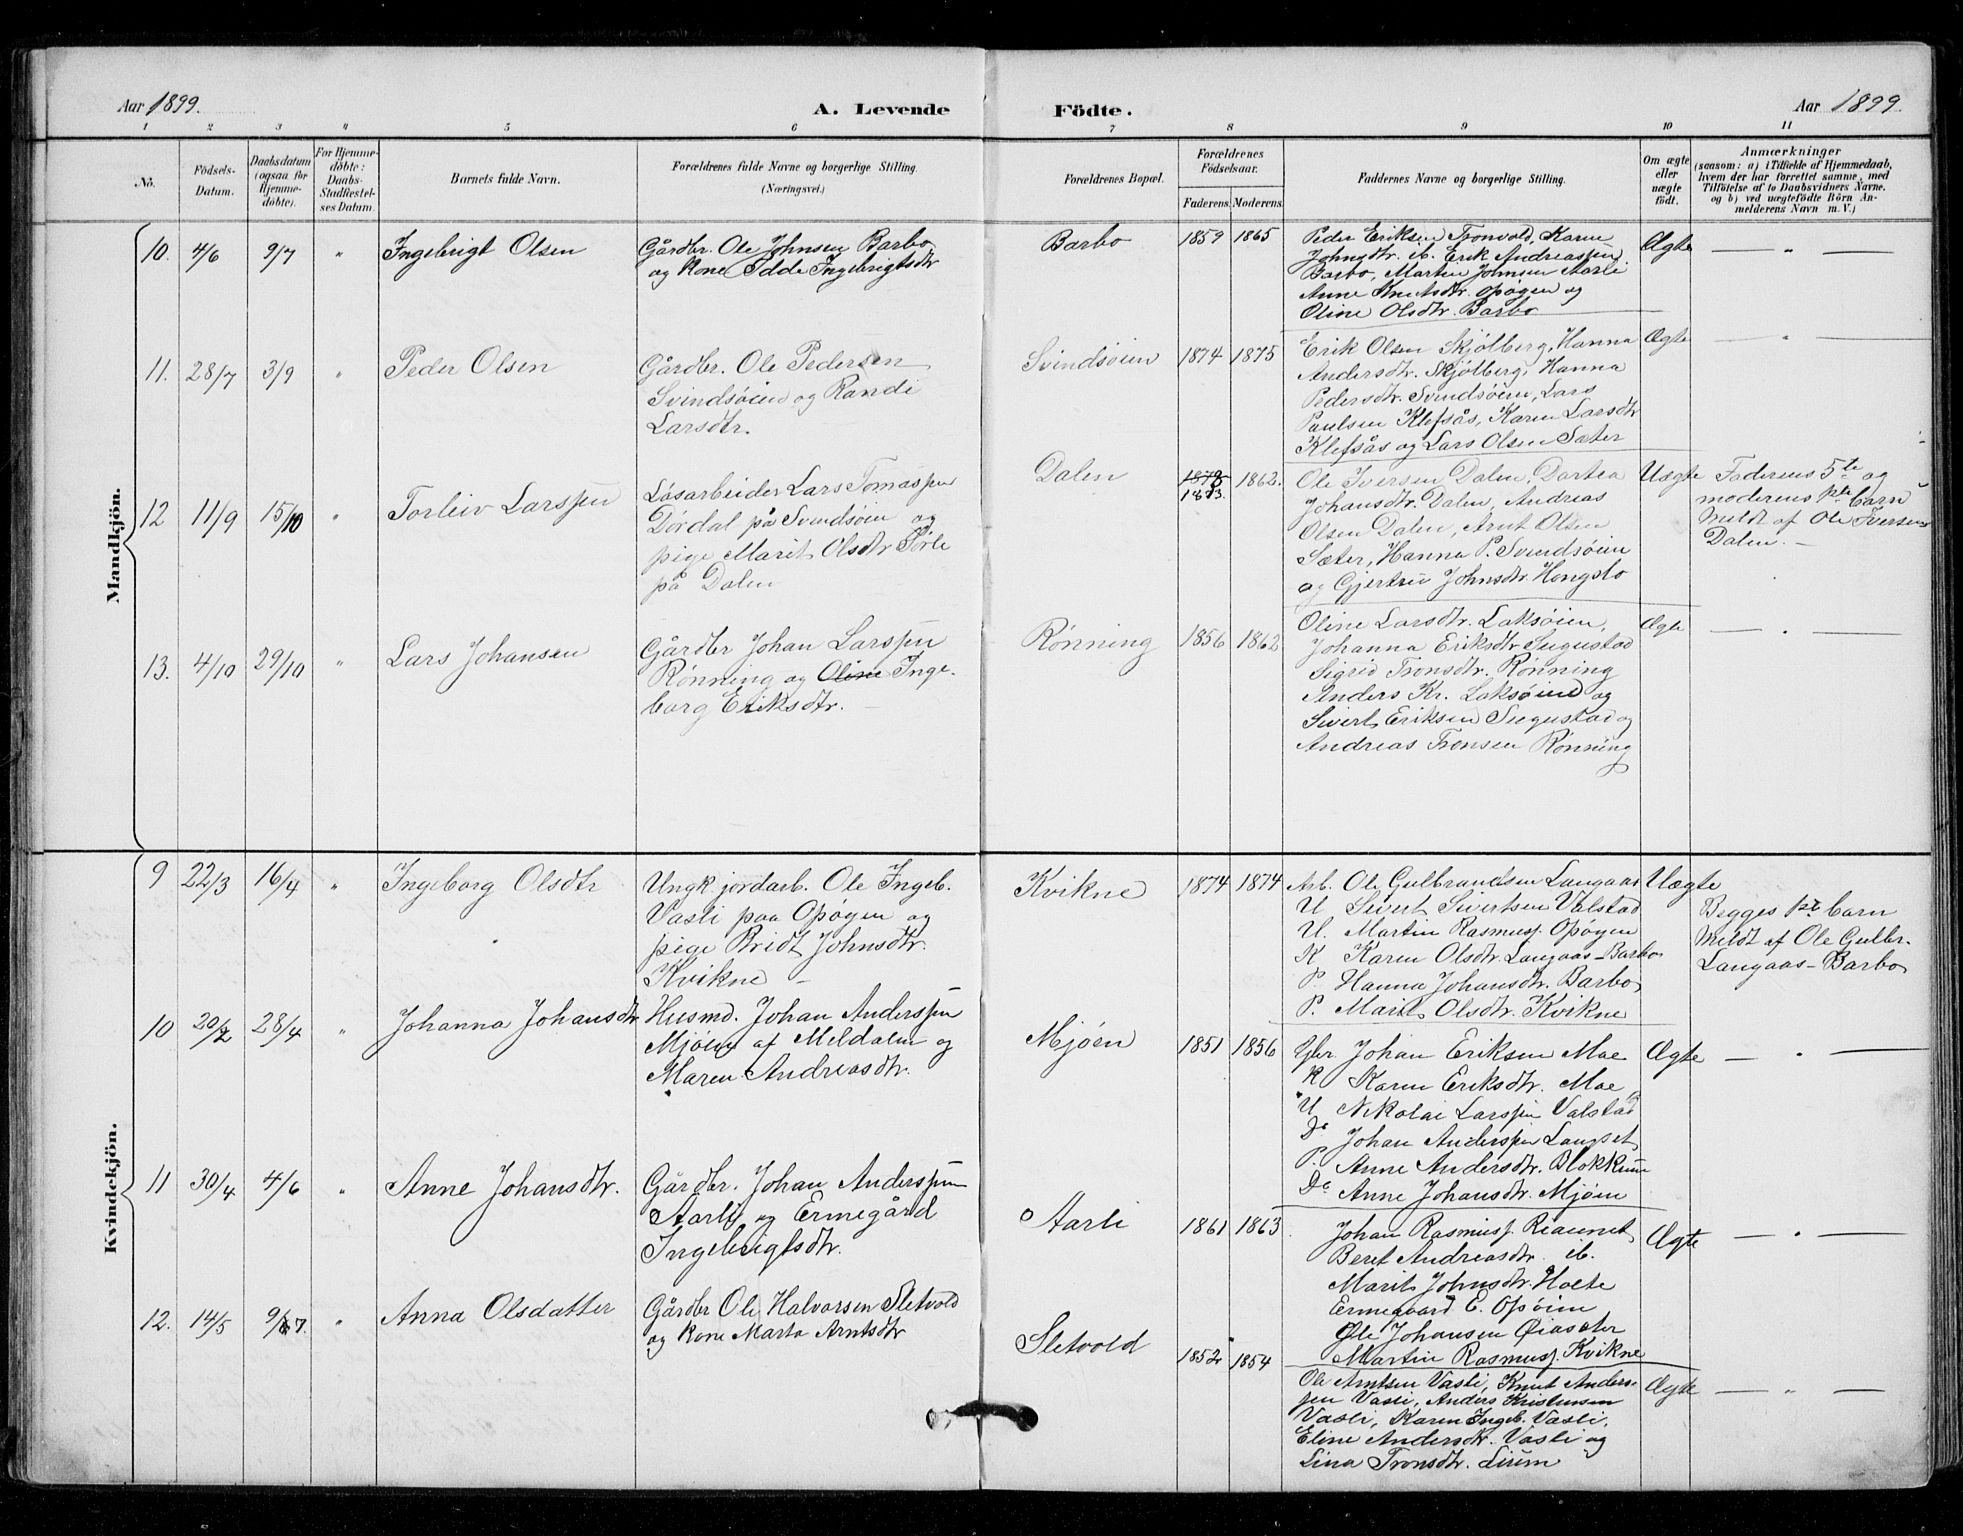 Aar 1899.
A. Levende Födte.
Aar 1899.
1 2 3 4 5 6 7 8 9 10 11
No.
Födsels-
Datum.
Daabsdatum
(ogsaa for
Hjemme-
döbte).
For Hjemme-
döbte:
Daabs-
Stadfæstel-
ses Datum.
Barnets fulde Navn.
Forældrenes fulde Navne og borgerlige Stilling.
(Næringsvei.)
Forældrenes Bopæl.
Forældrenes
Födselsaar.
Faderens. Moderens.
Faddernes Navne og borgerlige Stilling.
Om ægte
eller
uægte
födt.
Anmærkninger
(saasom: a) i Tilfælde af Hjemmedaab,
hvem der har forrettet samme, med
Tilföielse af to Daabsvidners Navne.
og b) ved uægtefödte Börn An-
melderens Navn m. V.)
Mandkjön.
10. 4/6 9/7 " Ingebrigt Olsen
Gårdbr. Ole Johnsen Barbo
og Kone Idde Ingebrigtsdtr
Barbo 1859 1865
Peder Eriksen Tronvold, Karen
Johnsdtr. ib. Erik Andreassen
Barbo, Martin Johnsen Aarli
Anne Knutsdtr. Opøgen og
Oline Olsdtr. Barbo
Ægte — " —
11. 28/7 3/9 " Peder Olsen
Gårdbr. Ole Pedersen
Svindsøien og Randi
Larsdtr.
Svindsøien 1874 1875
Erik Olsen Skjølberg, Hanna
Andersdtr. Skjølberg, Hanna
Pedersdtr. Svindsøien, Lars
Paulsen Klefsås, Karen Larsdtr
Klefsås og Lars Olsen Sæter
Ægte — " —
12 11/9 15/10 " Torleiv Larssen
Løsarbeider Lars Tomassen
Dørdal på Svindsøien og
pige Marit Olsdtr Sørli
på Dalen
Dalen 1873. 1862.
Ole Iversen Dalen, Dortea
Johansdtr. Dalen, Andreas
Olsen Dalen, Arnt Olsen
Sæter, Hanna P. Svindsøien
og Gjertrue Johnsdtr. Hongslo
Uægte
Faderens 5te og
moderens 1ste barn
Meldt af Ole Iversen
Dalen. —
13. 4/10 29/10 " Lars Johansen
Gårdbr Johan Larssen
Rønning og Oline Inge-
borg Eriksdtr. —
Rønning 1856 1862
Oline Larsdtr. Laksøien,
Johanna Eriksdtr Sugustad
Sigrid Tronsdtr. Rønning
Anders Kr. Laksøien og
Sivert Eriksen Sugustad og
Andreas Tronsen Rønning
Ægte — " —
Kvindekjön.
9 22/3 16/4 " Ingeborg Olsdtr
Ungk. jordarb. Ole Ingeb.
Vasli paa Opøgen og
pige Bridt Johnsdtr.
Kvikne —
Kvikne 1874 1874
Arb. Ole Gulbrandsen Langaas
U Sivert Sivertsen Valstad
U. Martin Rasmuss. Opøgen
K Karen Olsdtr. Langaas-Barbo
P. Hanna Johansdtr. Barbo
P. Marit Olsdtr. Kvikne
Uægte
Begges 1ste barn
Meldt af Ole Gulbr.
Langaas-Barbo
10 20/2 28/4 " Johanna Johansdtr
Husmd. Johan Anderssen
Mjøen af Meldalen og
Maren Andreasdtr.
Mjøen 1851 1856
Gbr Johan Eriksen Moe
K Karen Eriksdtr. Moe
U Nikolai Larssen Valstad
Do Johan Anderssen Langset
P. Anne Andersdtr. Blokkum
Do Anne Johansdtr. Mjøen
Ægte — " —
11 30/4 4/6 " Anne Johansdtr.
Gårdbr. Johan Anderssen
Aarli og Ermegård
Ingebrigtsdtr.
Aarli 1861 1863.
Johan Rasmuss. Reaunet
Beret Andreasdtr. ib.
Marit Johnsdtr. Holte
Ermegaard E. Opøien
Ole Johansen Øiasæter
Martin Rasmuss. Kvikne
Ægte — " —
12. 14/5 9/7. " Anna Olsdatter
Gårdbr Ole Halvorsen Sletvold
og Kone Marta Arntsdtr
Sletvold 1852 1854
Ole Arntsen Vasli, Knut Anders-
sen Vasli, Anders Kristensen
Vasli, Karen Ingeb. Vasli,
Eline Andersdtr. Vasli og
Lina Tronsdtr. Lium
Ægte — " —